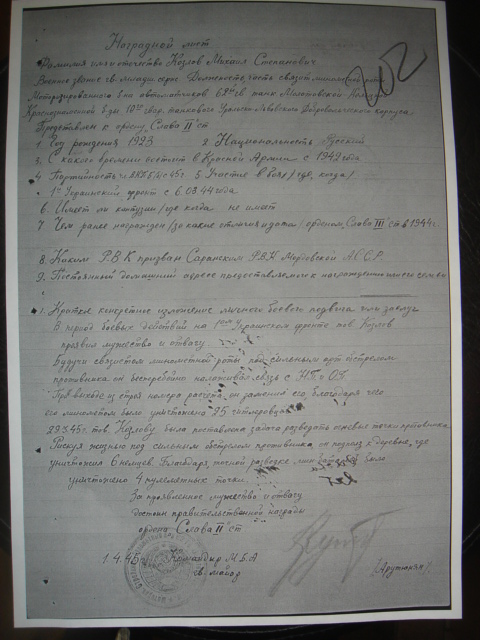 Наградной лист
Фамилия имя отчество Козлов Михаил Степанович
Военное звание гв. младш. серж. Должность, часть связист минометной роты
Моторизированного б-на автоматчиков 62ой гв. танк.
Краснознаменной 10 гвар. танкового Уральско-Львовского Добровольческого корпуса
Представлен к ордену „Слава II" ст
1. Год рождения 1923 2. Национальность Русский
3. С какого времени состоит в Красной Армии с 1942 года
4. Партийность 45г. 5. Участие в боях /где, когда/
1й Украинский фронт с 6.03.44 года
6. Имеет ли контузии /где когда не имеет
7. Чем ранее награжден /за какие отличия и дата/ орденом „Слава III" ст в 1944г.
8. Каким Р.В.К призван Саранским Р.В.К Мордовской А.С.С.Р.
9. Постоянный домашний адрес представляемого к награждению
1. Краткое конкретное изложение личного боевого подвига или заслуг
В период боевых действий на 1ом Украинском фронте тов. Козлов
проявил мужество и отвагу
Будучи связистом минометной роты под сильным арт обстрелом
противника он бесперебойно налаживал связь с НП и ОП
При выходе из строя номера расчета, он заменял его благодаря чего
его минометом было уничтожено 25 гитлеровцев
29.3.45г. тов. Козлову была поставлена задача разведать огневые точки противника
Рискуя жизнью под сильным обстрелом противника, он подполз к деревне, где
уничтожил 6 немцев. Благодаря, точной разведке мин. было
уничтожено 4 пулеметных точки
За проявленное мужество и отвагу
достоин правительственной награды
ордена „Слава II" ст
1.4.45г. Командир М.Б.А
гв. майор (Арутюнян)